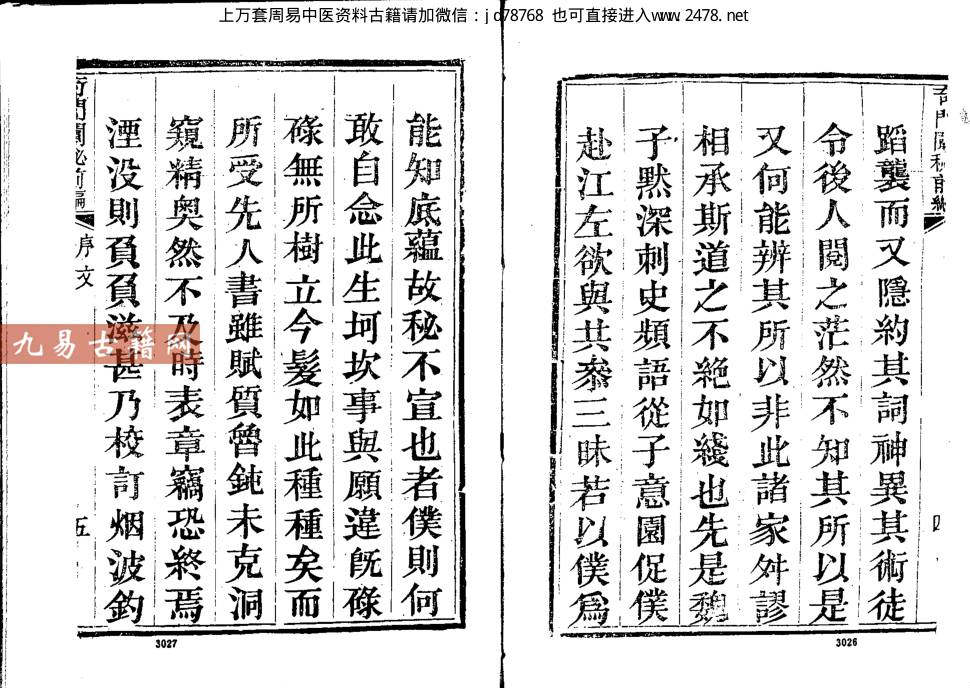 上万套周易中医资料古籍请加微信：jd78768 也可直接进入www.2478.net
蹈襲而又隱約其詞神異其術徒
令後人閱之茫然不知其所以是
又何能辨其所以非此諸家舛謬
相承斯道之不絶如綫也先是魏
子默深刺史頻語從子意園促僕
赴江左欲與共叅三昧若以僕爲
四
3026
能知底蘊故秘不宣也者僕則何
敢自念此生坷坎事與願違旣碌
碌無所樹立今髮如此種種矣而
所受先人書雖賦質魯鈍未克洞
窺精奥然不及時表章竊恐終焉
湮没則負負滋甚乃校訂烟波釣
奇門闡秘前編
序文
五
3027
九易古籍网